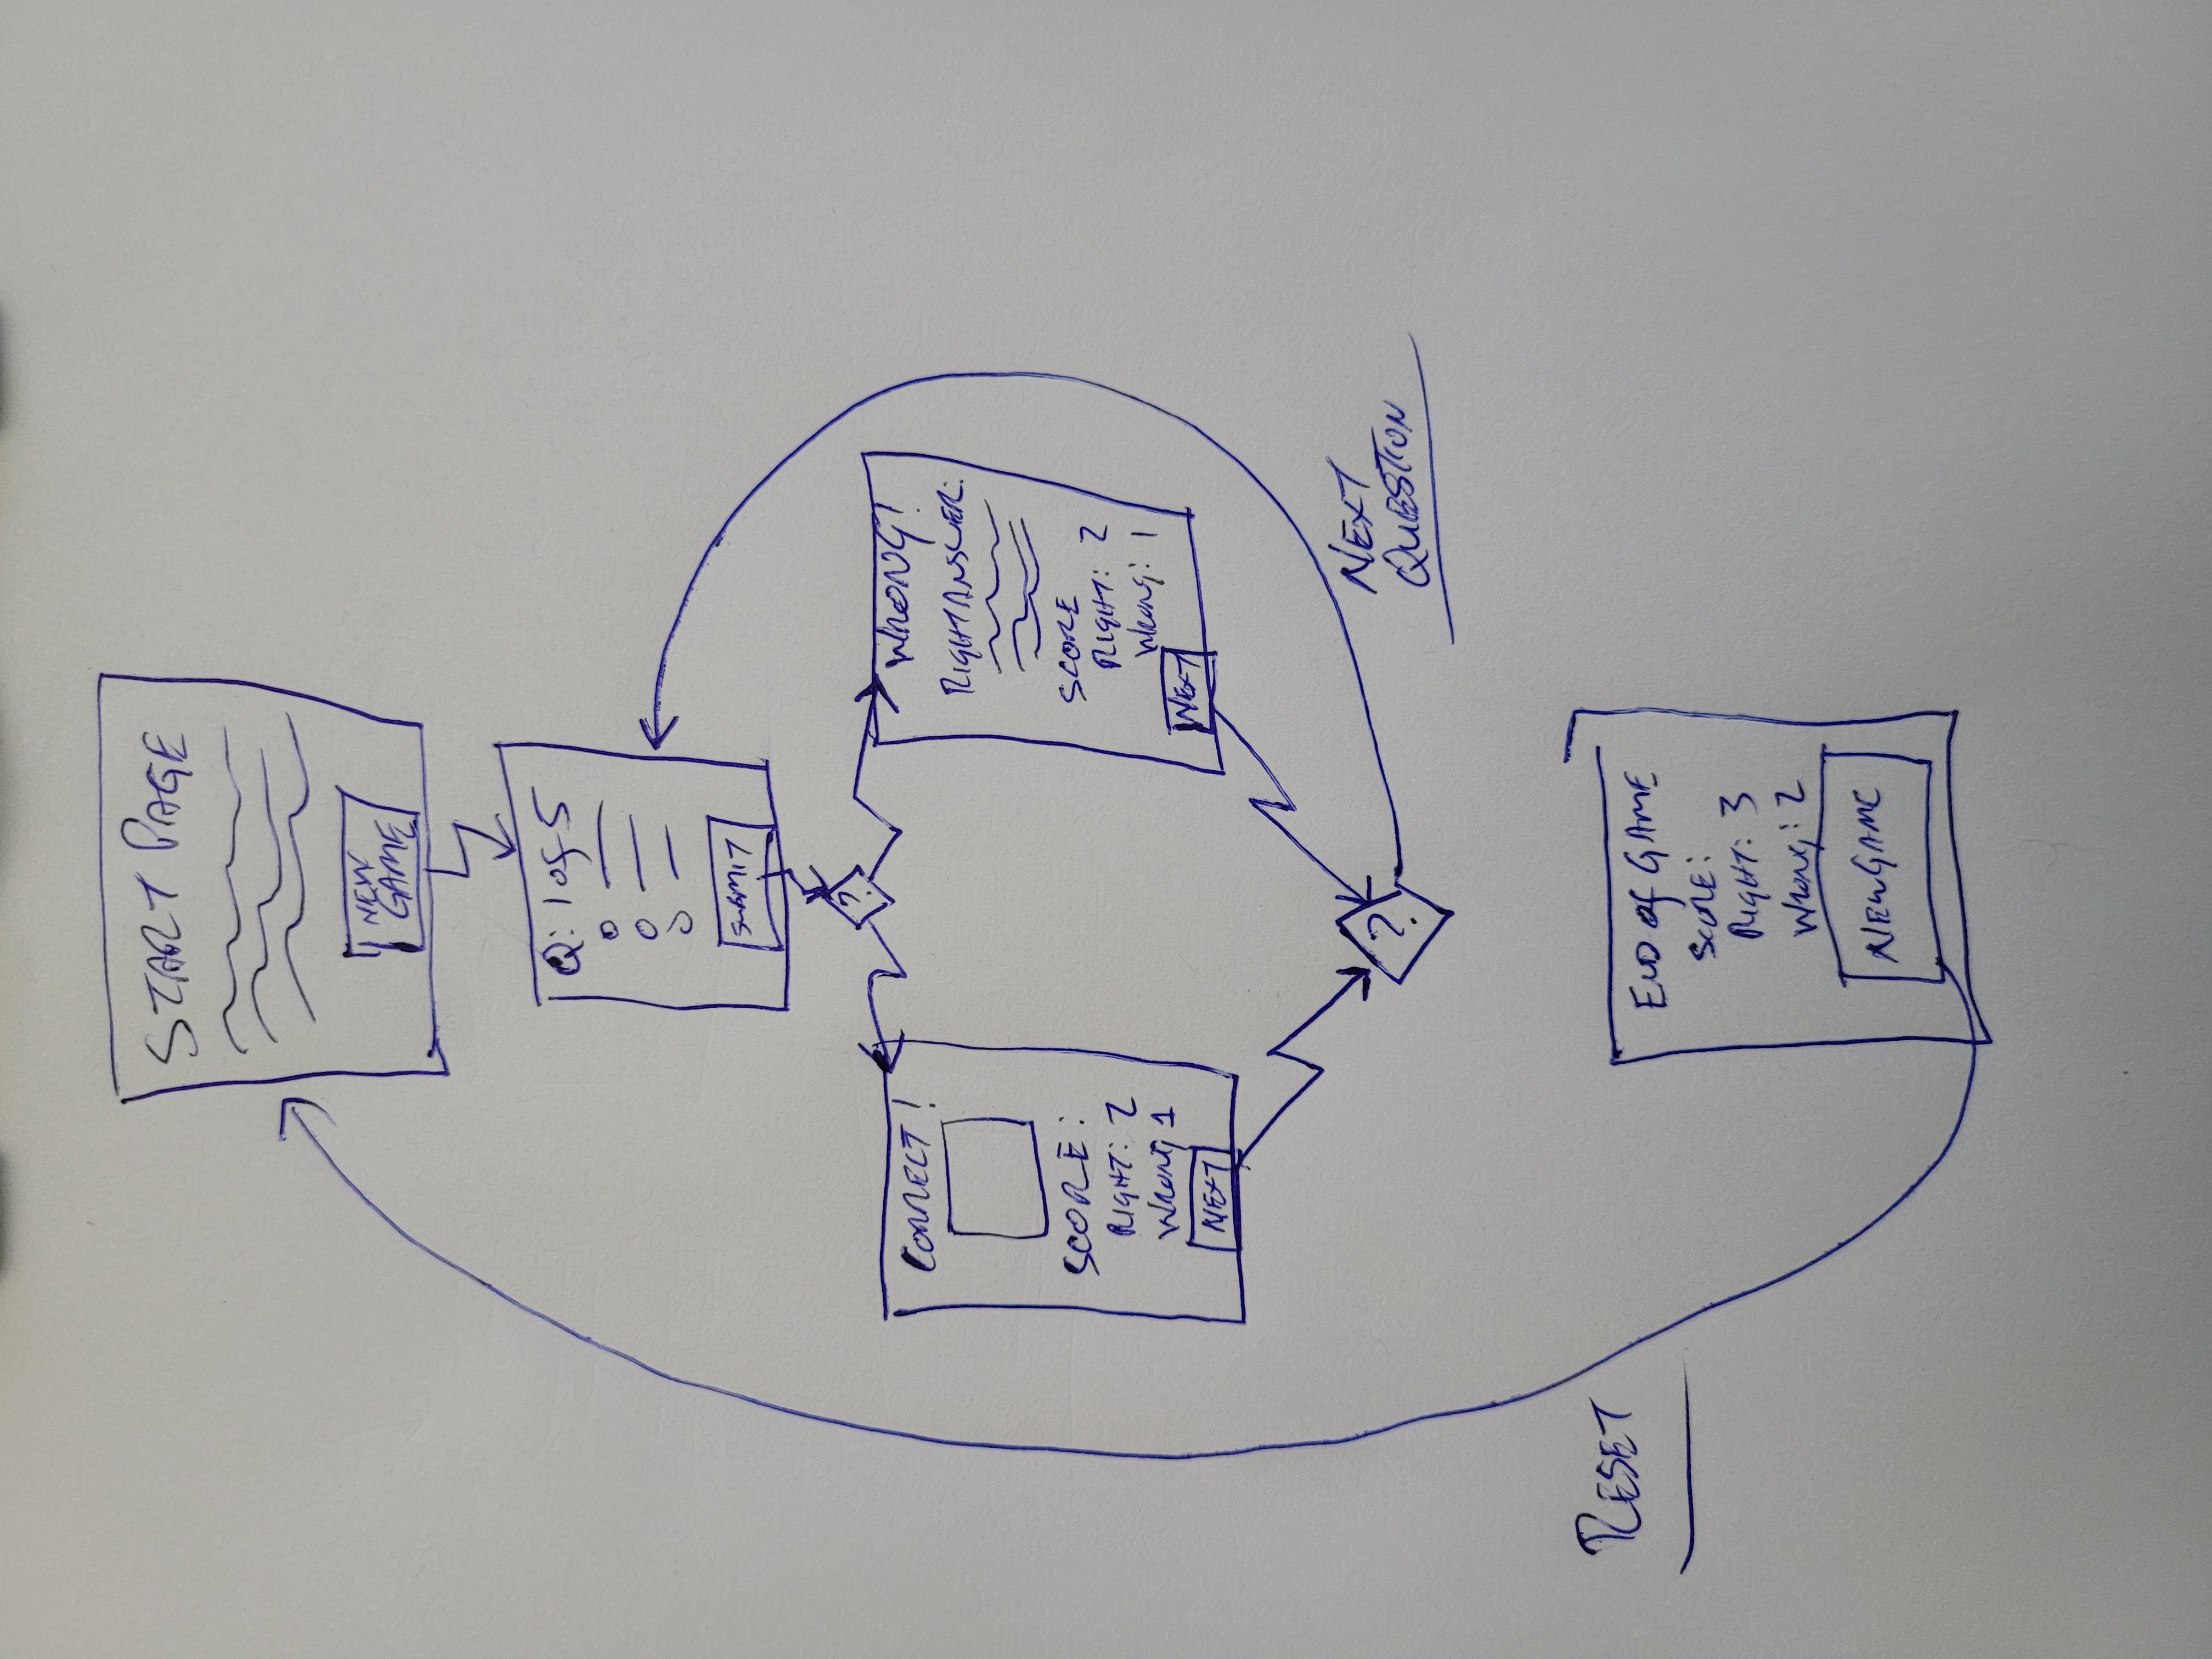 START PAGE
NEW
GAME
Q: 1 of 5
SUBMIT
?
CORRECT!
SCORE:
RIGHT: 2
WRONG 1
NEXT
WRONG!
RIGHT ANSWER:
SCORE
RIGHT: 2
WRONG: 1
NEXT
?
NEXT
QUESTION
RESET
END of GAME
SCORE:
RIGHT: 3
WRONG: 2
NEW GAME